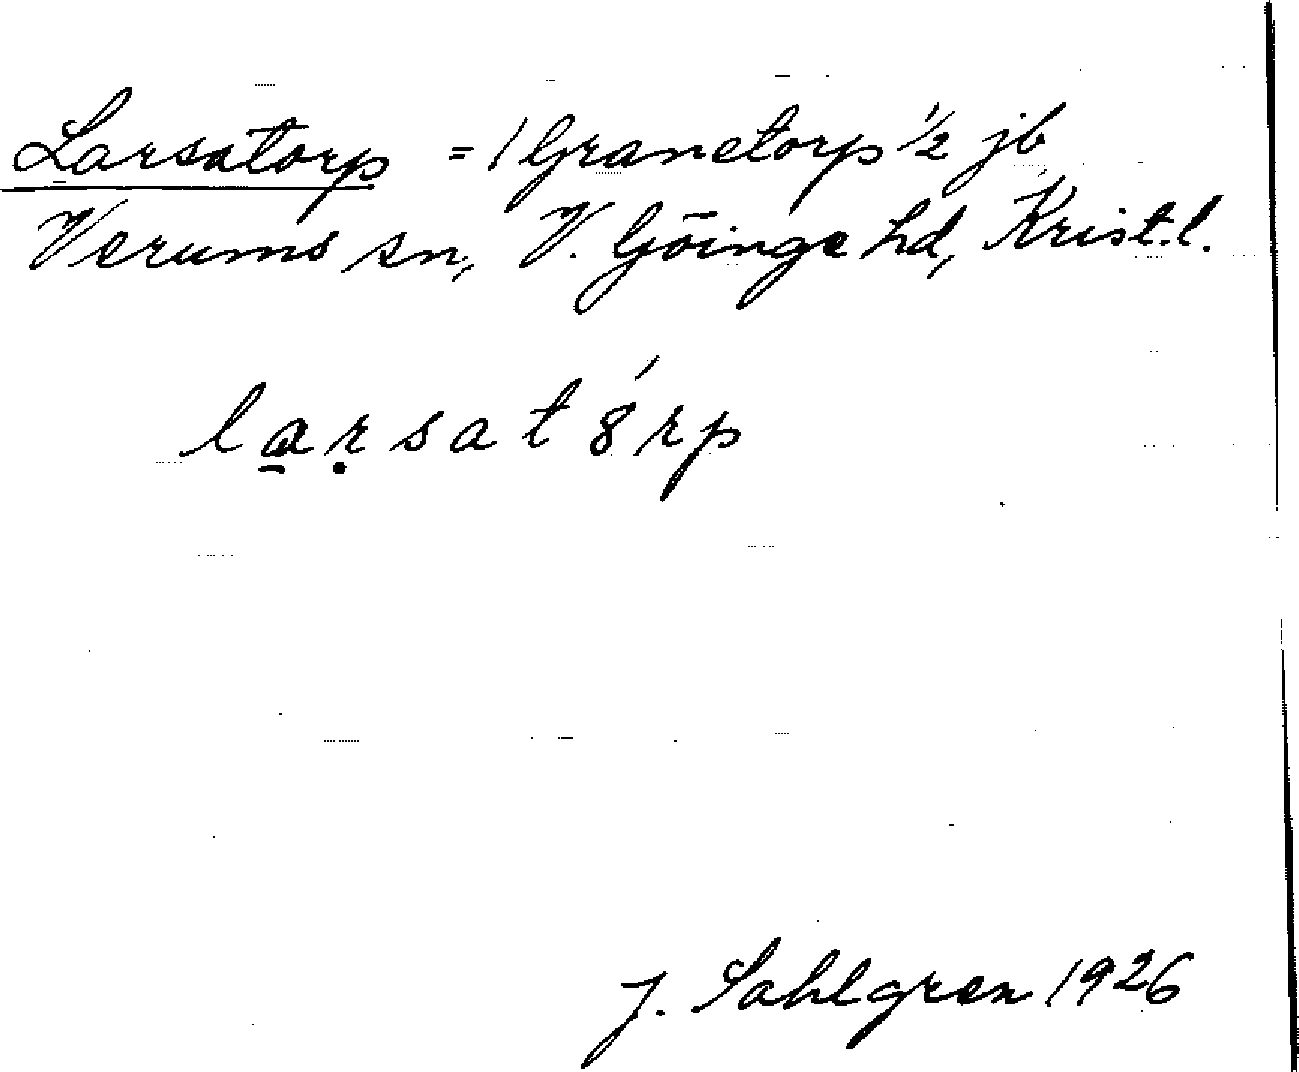 Larsatorp = 1 Granetorp 1/2 jb
Verums sn, V. Göinge hd, Krist.l.
larsat8́rp
J. Sahlgren 1926